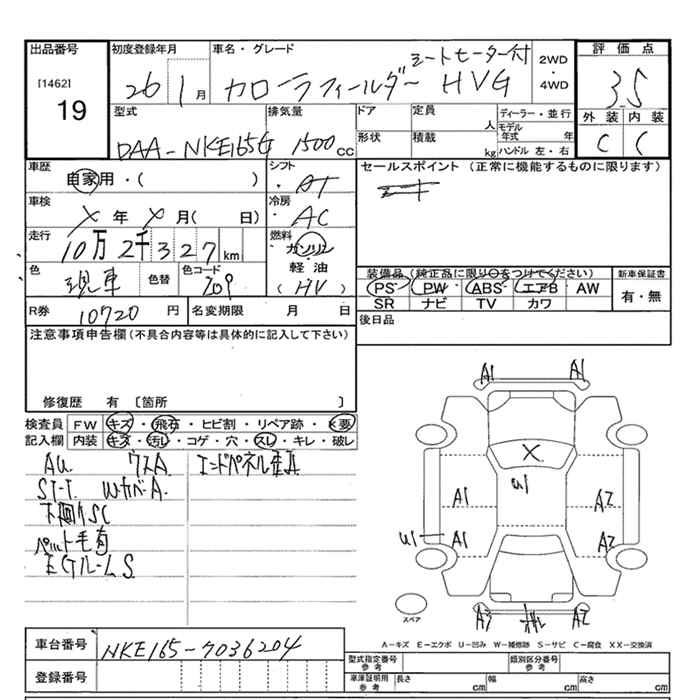 出品番号
[1462]
19
初度登録年月
26 1月
車名・グレード
シートモーター付
カローラフィールダー HVG
2WD
・
4WD
評価点
3.5
外装 内装
C C
型式
DAA-NKE165G
排気量
1500cc
ドア
定員
人
ディーラー・並行
モデル年式 年
形状
積載
kg
ハンドル 左・右
車歴
自家用・( )
シフト
AT
セールスポイント (正常に機能するものに限ります)
車検
X年X月( 日)
冷房
AC
走行
10万2千327km
燃料
ガソリン
軽油
(HV)
色
現車
色替
色コード
209
装備品(純正品に限り○をつけてください)
PS・PW・ABS・エアB・AW
SR ナビ TV カワ
新車保証書
有・無
R券
10720円
名変期限 月 日
後日品
注意事項申告欄(不具合内容等は具体的に記入して下さい)
修復歴 有 [箇所 ]
検査員
記入欄
FW キズ・飛石・ヒビ割・リペア跡・X要
内装 キズ・汚レ・コゲ・穴・スレ・キレ・破レ
AU ワスA
エンドパネル歪A
ST-T WカバーA
下廻りSC
ペット毛有
EGルームS
A1 A1
X
U1
A1 A2
U1 A1 A2
A2 A2
スペア
A-キズ E-エクボ U-凹み W-補修跡 S-サビ C-腐食 XX-交換済
車台番号
NKE165-7036204
登録番号
型式指定番号
参考
類別区分番号
参考
車庫証明用
参考
長さ cm
幅 cm
高さ cm